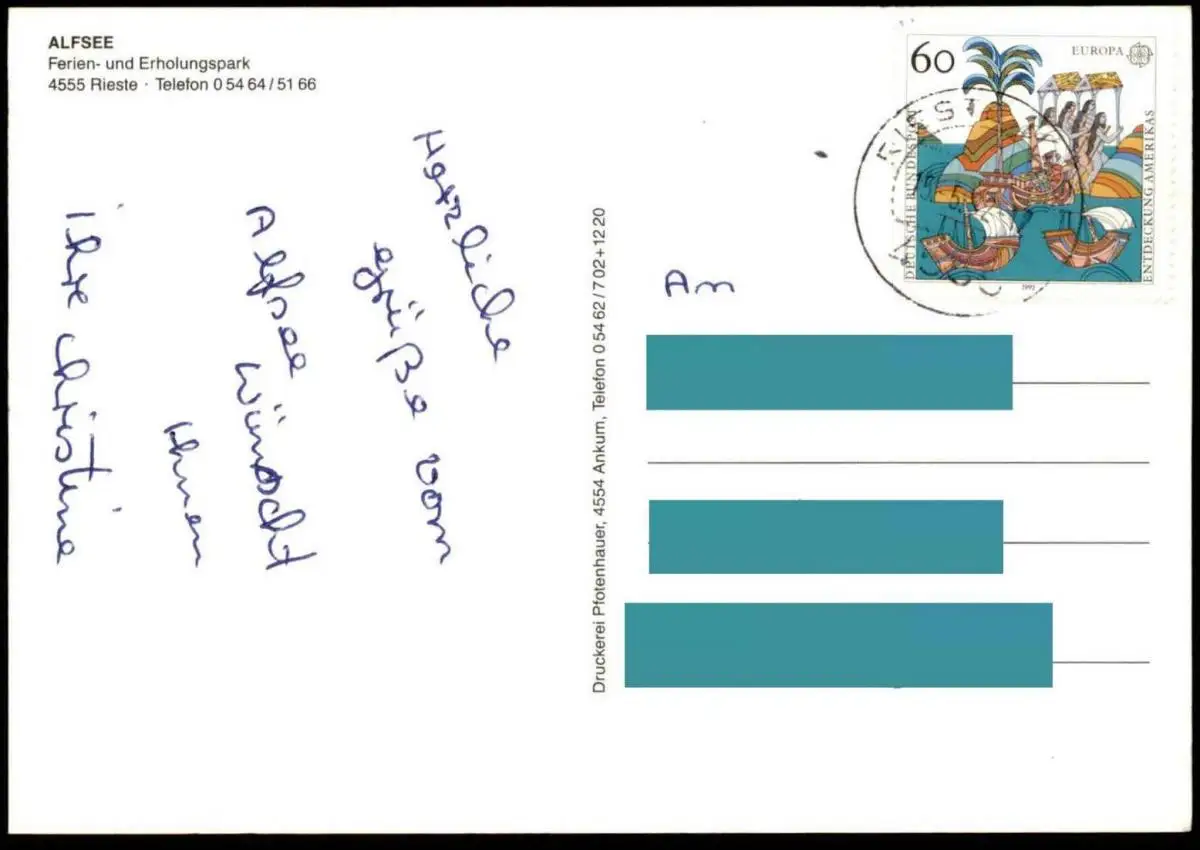 ALFSEE
Ferien- und Erholungspark
4555 Rieste · Telefon 0 54 64 / 51 66
Herzliche
Grüße vom
Alfsee wünscht
Ihnen
Ihre Christine
Druckerei Pfotenhauer, 4554 Ankum, Telefon 0 54 62 / 7 02 + 12 20
Am
60
EUROPA
DEUTSCHE BUNDESPOST
ENTDECKUNG AMERIKAS
1992
RIEST